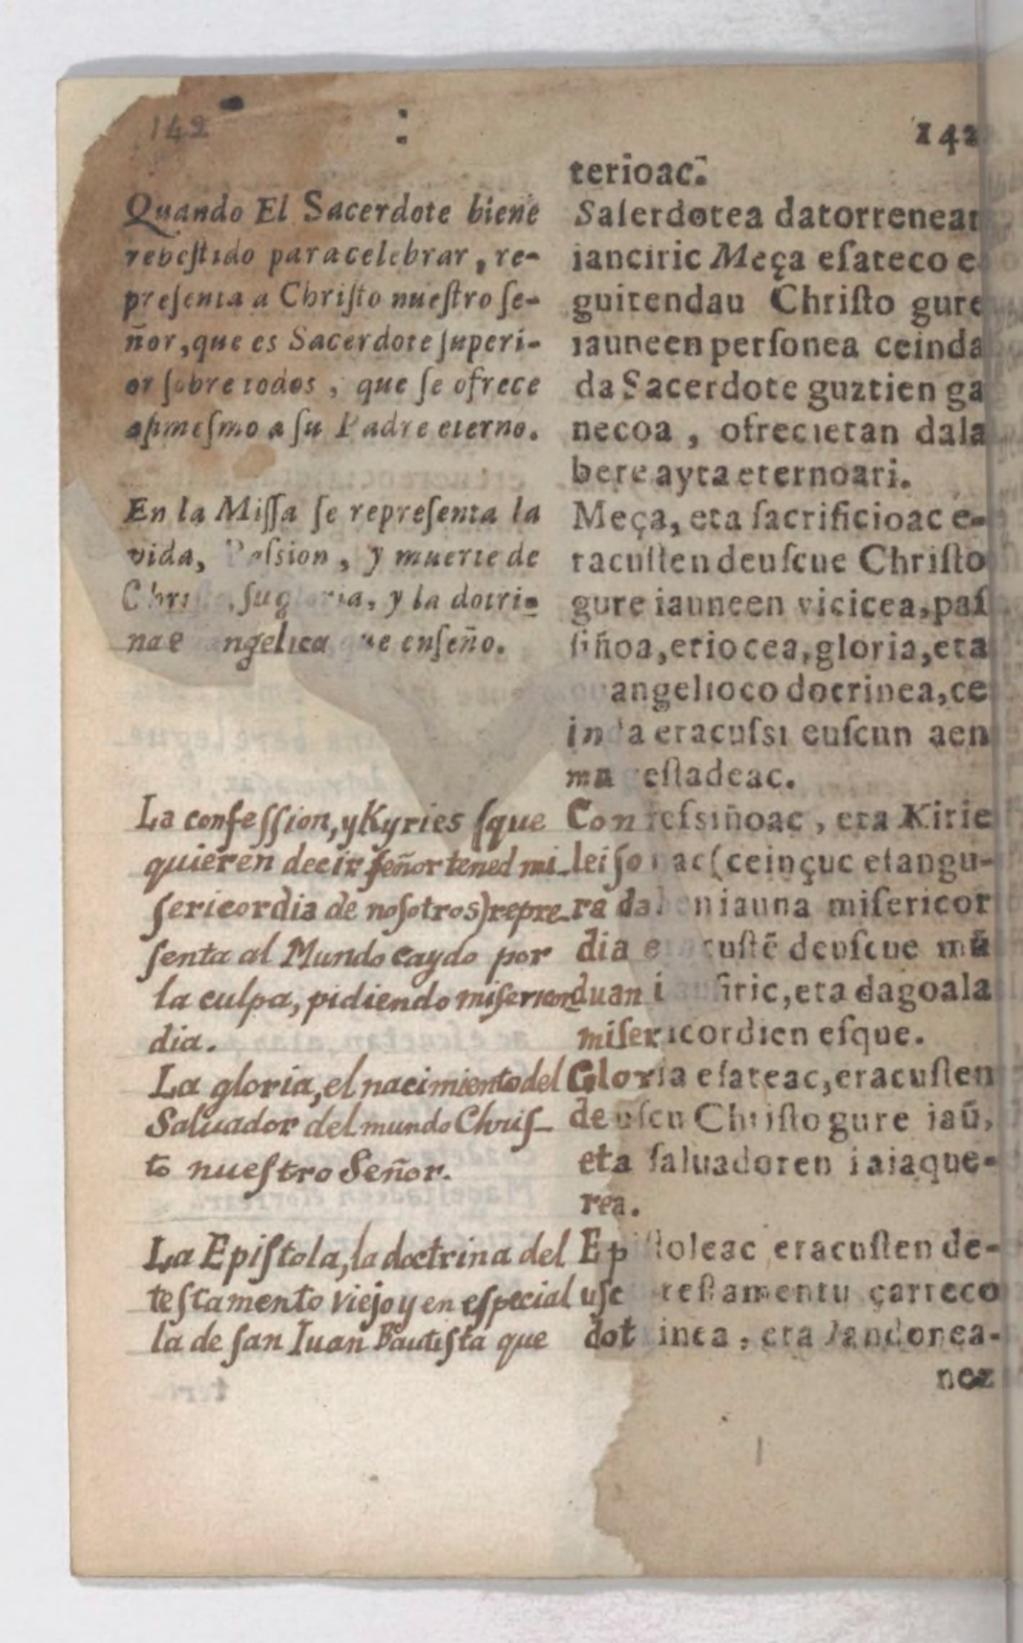 142
142
Quando El Sacerdote biene
rebestido para celebrar, re-
presenta a Christo nuestro se-
ñor, que es Sacerdote superi-
or sobre todos, que se ofrece
asimesmo a su Padre eterno.
En la Missa se representa la
vida, Passion, y muerte de
Christo, su gloria, y la dotri-
na evangelica que enseño.
La confession, y Kyries (que
quieren decir señor tened mi-
sericordia de nosotros) repre-
senta al Mundo caydo por
la culpa, pidiendo misericor
dia.
La gloria, el nacimiento del
Salvador del mundo Chris-
to nuestro Señor.
La Epistola, la doctrina del
testamento viejo y en especial
la de san Iuan Bautista que
terioac.
Saserdotea datorrenean
ianciric Meça esateco e
guitendau Christo gure
iauneen persone̶a ceinda
da Sacerdote guztien ga
necoa, ofrecietan dala
bere ayta eternoari.
Meça, eta sacrificioac e-
racusten deuscue Christo
gure iauneen vicicea, pas
siñoa, eriocea, gloria, eta
angelioco doctrinea, ce
inda eracussi euscun aen
magestadeac.
Confessiñoac, eta Kirie
leisonac (ceinçuc esangu-
ra daben iauna misericor
dia eracustē deuscue mū
duan iausiric, eta dagoala
misericordien esque.
Gloria esateac, eracusten
deuscu Christo gure iaū,
eta saluadoren iaiaque-
rea.
Epistoleac eracusten de-
usc testamentu çarreco
dotrinea, eta Iandonea-
nez